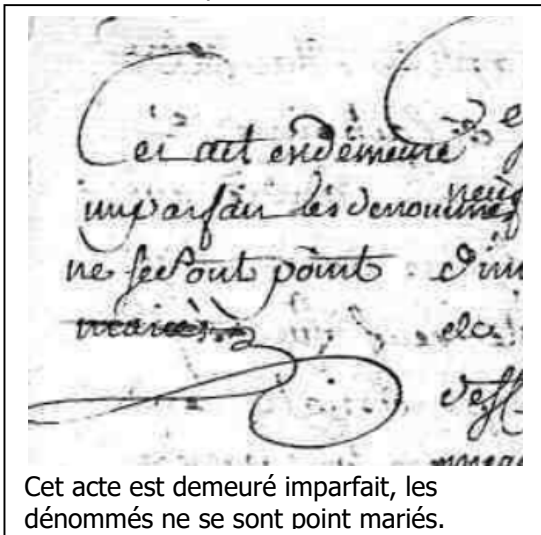 Cet act en demeuré
imparfair les denommés
ne se sont point
mariés.
neuf
d'un
Cet acte est demeuré imparfait, les
dénommés ne se sont point mariés.